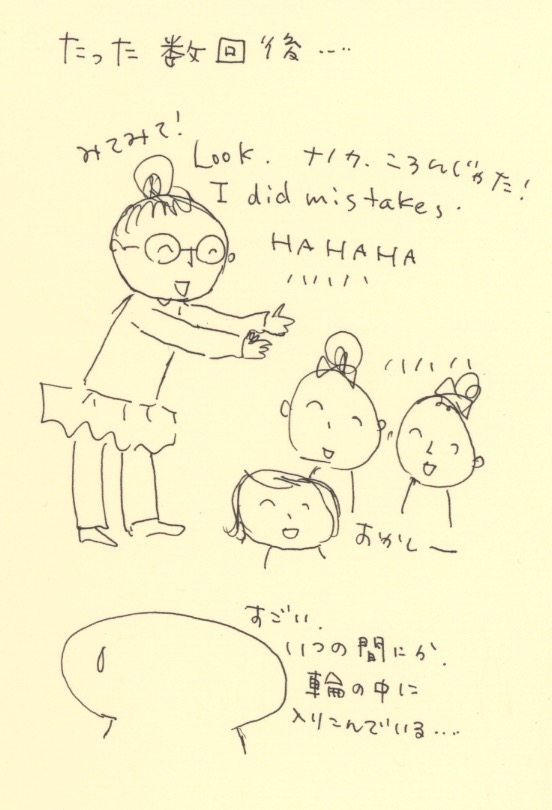 たった数回後‥‥
みてみて!
Look. ナノカ. ころんじゃた!
I did mistakes.
HA HA HA HA
ハハハハ
おかしー
すごい.
いつの間にか.
輪の中に
入りこんでいる‥‥